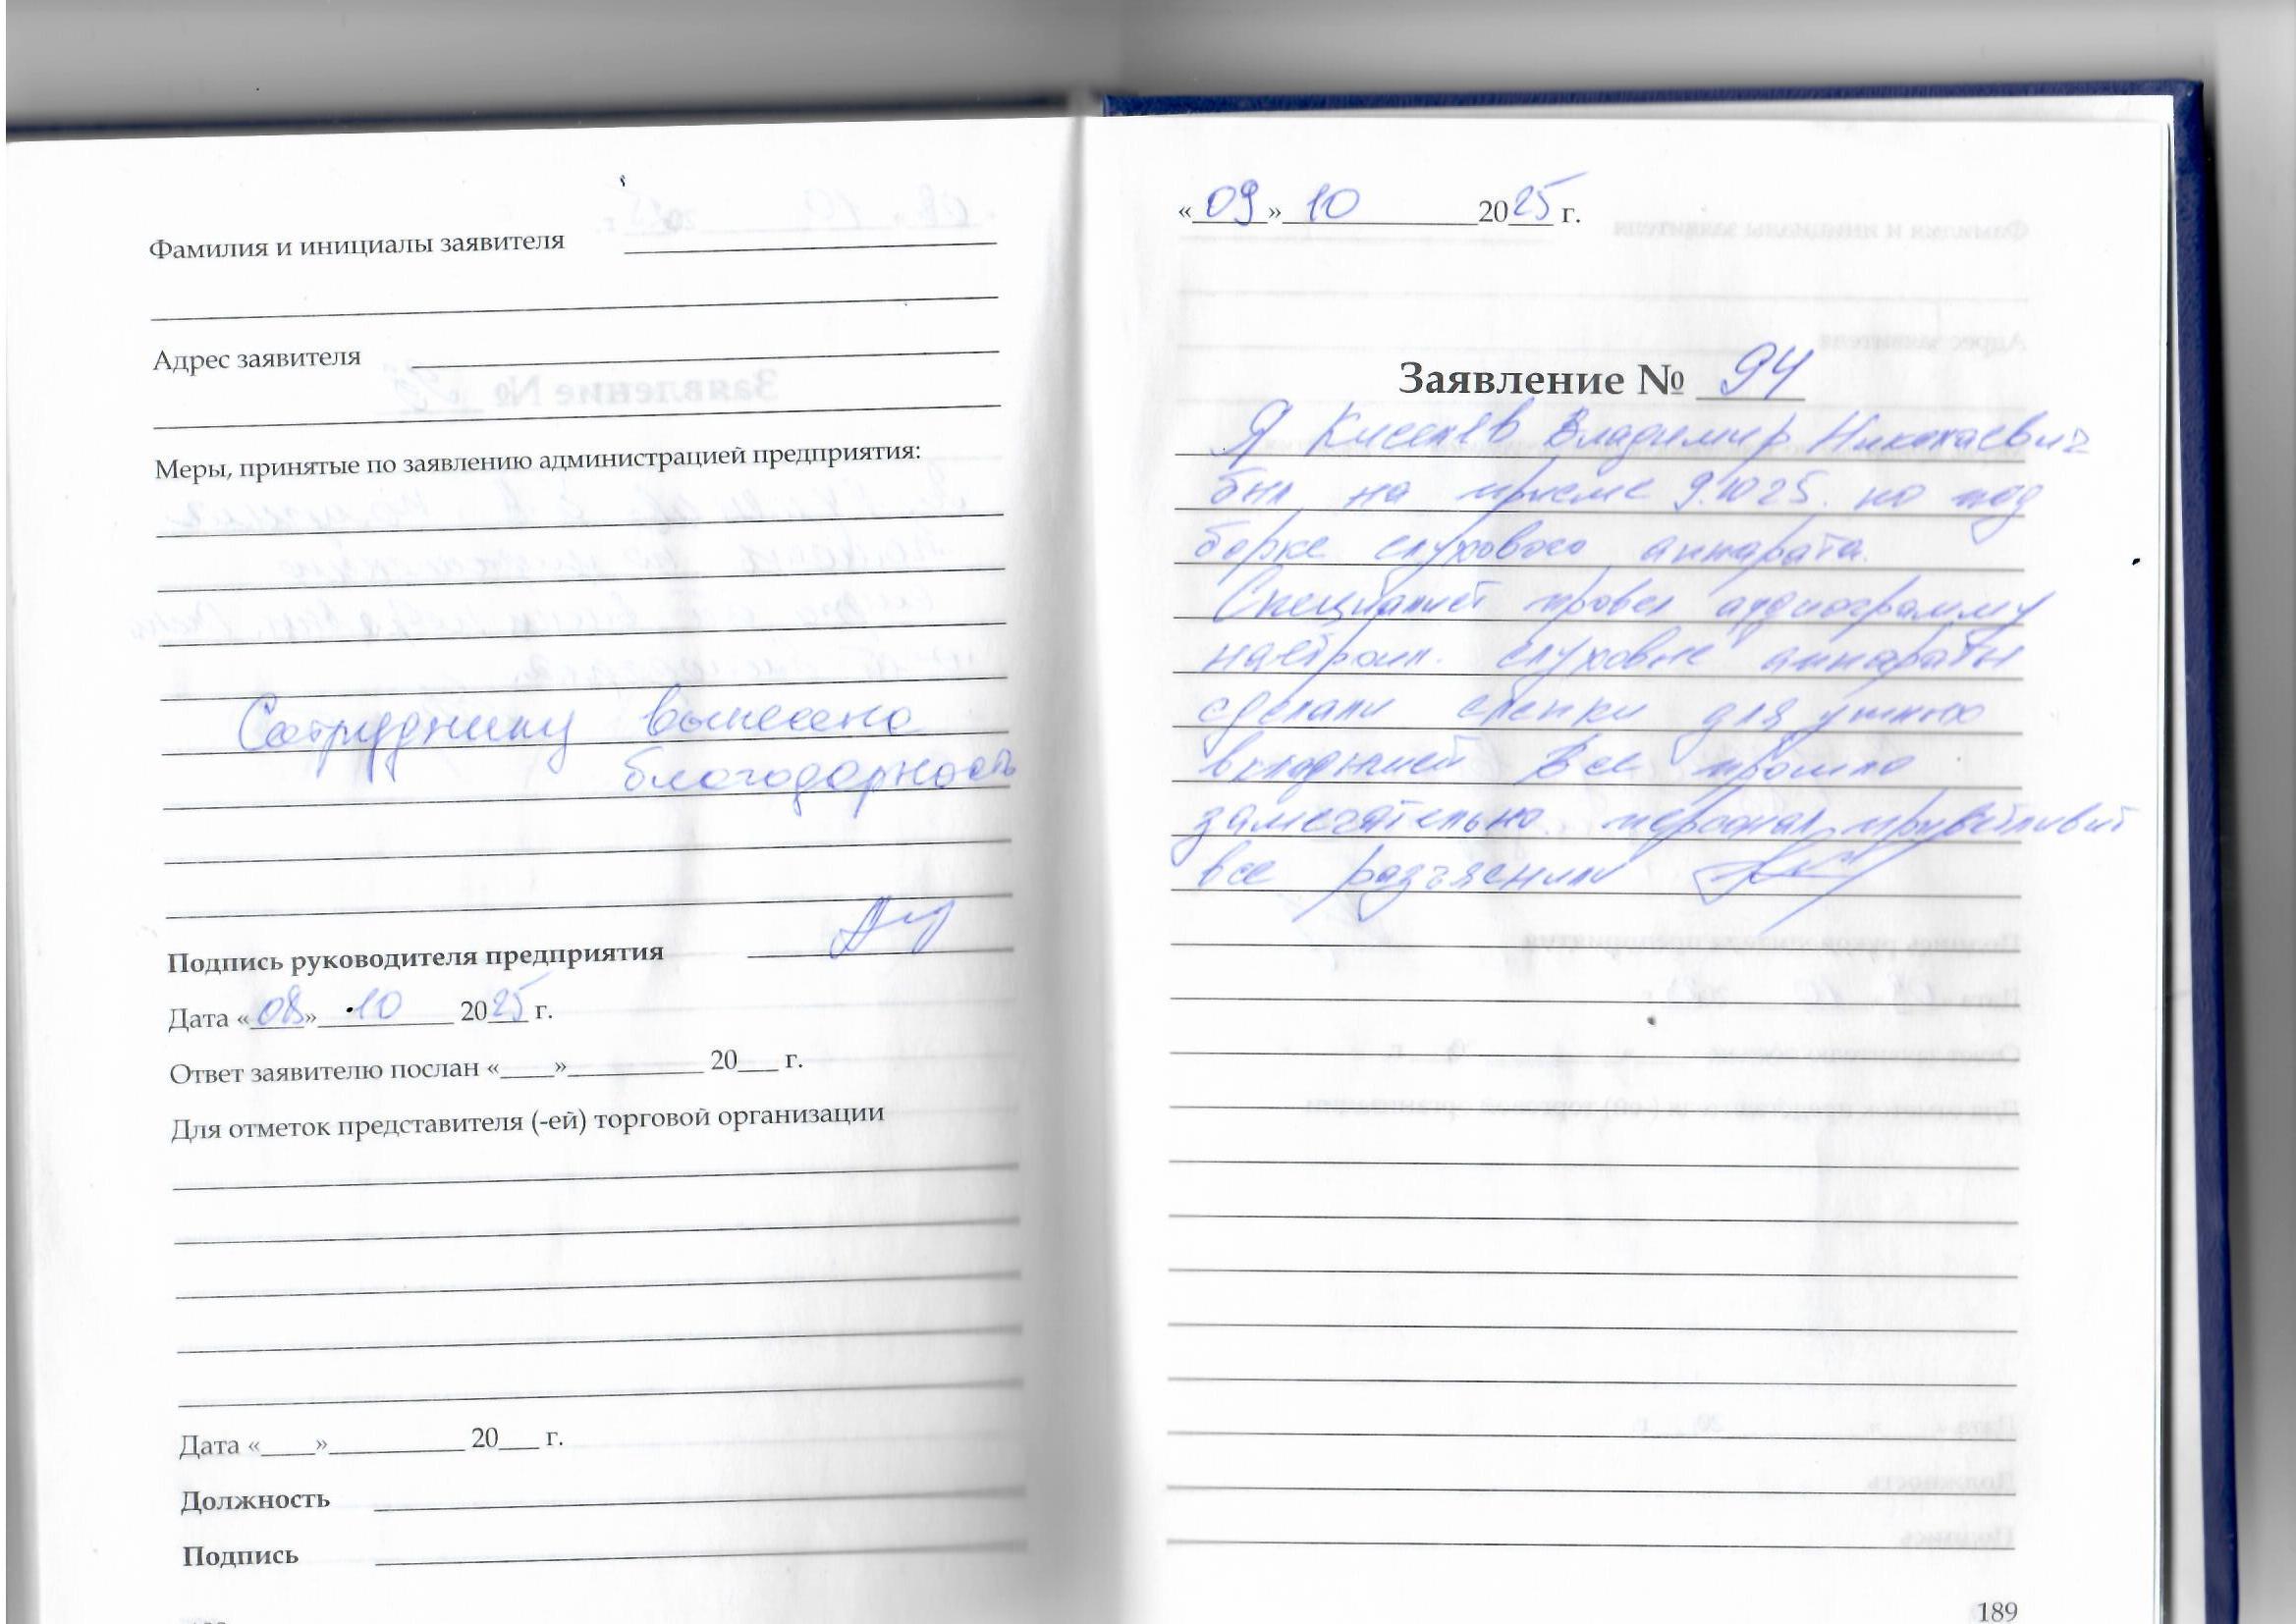 Фамилия и инициалы заявителя
Адрес заявителя
Меры, принятые по заявлению администрацией предприятия:
Сотруднику вынесена
благодарность
Подпись руководителя предприятия
Дата «08» 10 2025 г.
Ответ заявителю послан «____»__________ 20___ г.
Для отметок представителя (-ей) торговой организации
Дата «____»__________ 20___ г.
Должность
Подпись
«09» 10 2025 г.
Заявление № 94
Я Киселев Владимир Николаевич
был на приеме 9.10 25. по под
борке слухового аппарата.
Специалист провел аудиограмму
настроил. слуховые аппараты
сделали слепки для ушных
вкладышей Все прошло
замечательно. персонал приветливый
все разъяснили
189